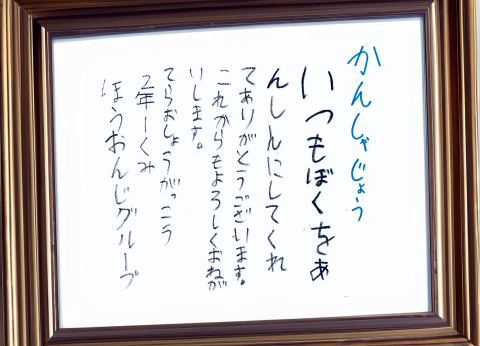 かんしゃじょう
いつもぼくをあ
んしんにしてくれ
てありがとうございます。
これからもよろしくおねが
いします。
てらおしょうがっこう
2年1くみ
ほうおんじグループ